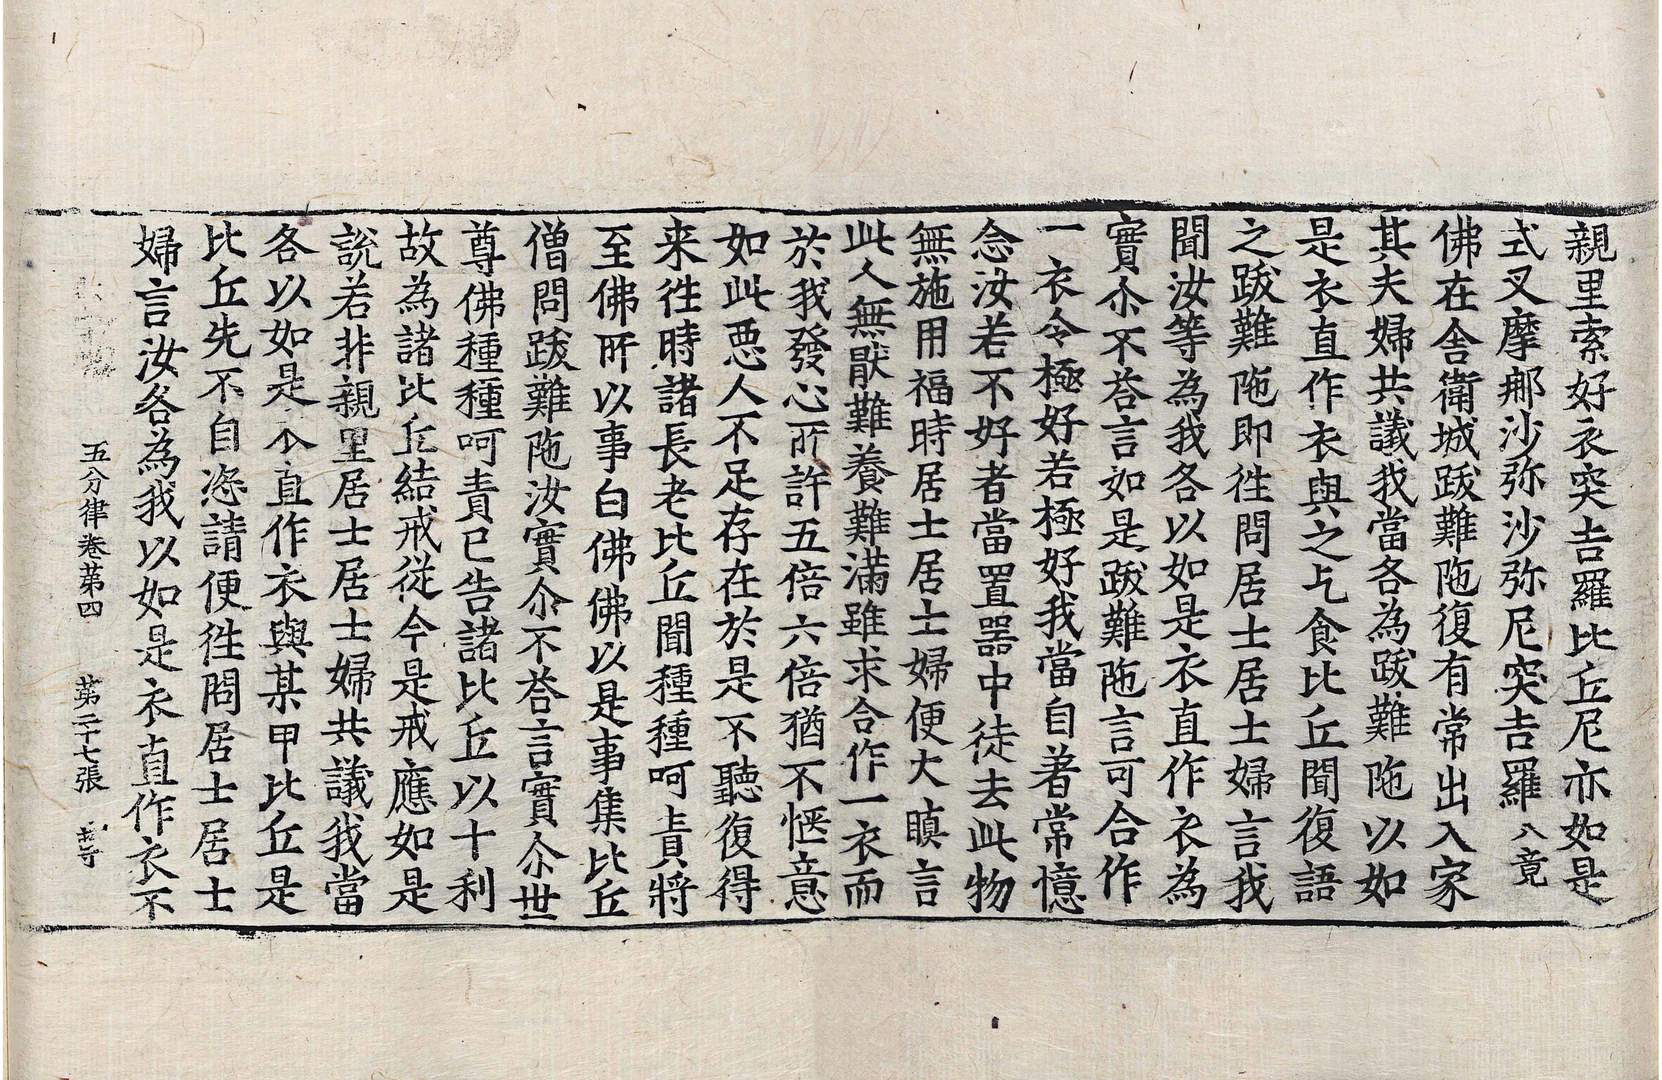 親里索好衣突吉羅比丘尼亦如是
式叉摩那沙弥沙弥尼突吉羅八竟
佛在舎衛城跋難陁復有常出入家
其夫婦共議我當各為跋難陁以如
是衣直作衣與之乞食比丘聞復語
之跋難陁即徃問居士居士婦言我
聞汝等為我各以如是衣直作衣為
實尒不荅言如是跋難陁言可合作
一衣令極好若極好我當自著常憶
念汝若不好者當置器中徒去此物
無施用福時居士居士婦便大瞋言
此人無猒難養難滿雖求合作一衣而
於我發心所許五倍六倍猶不愜意
如此悪人不足存在於是不聽復得
来徃時諸長老比丘聞種種呵責將
至佛所以事白佛佛以是事集比丘
僧問跋難陁汝實尒不荅言實尒世
尊佛種種呵責已告諸比丘以十利
故為諸比丘結戒從今是戒應如是
說若非親里居士居士婦共議我當
各以如是衣直作衣與某甲比丘是
比丘先不自恣請便徃問居士居士
婦言汝各為我以如是衣直作衣不
五分律卷苐四　苐二十七張